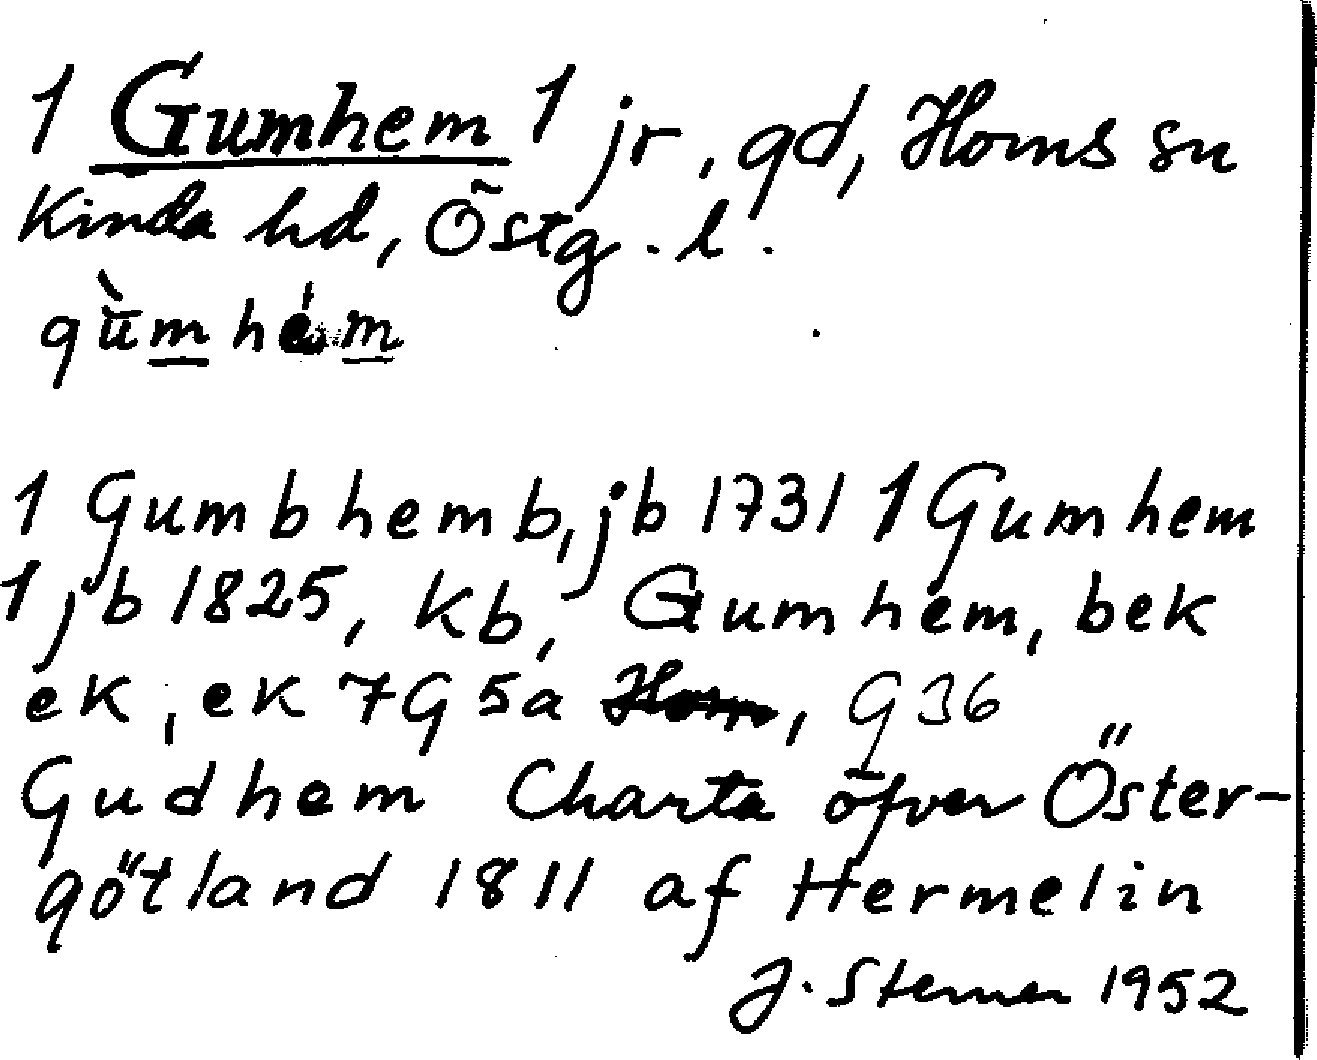 1 Gumhem 1 jr, gd, Horns sn
Kinda hd, Östg. l.
gùm hem
1 Gumbhemb, jb 1731 1 Gumhem
1 jb 1825, kb, Gumhem, bek
ek, ek 7G5a Horn, G36
Gudhem Charta öfver Öster-
götland 1811 af Hermelin
J. Sterner 1952